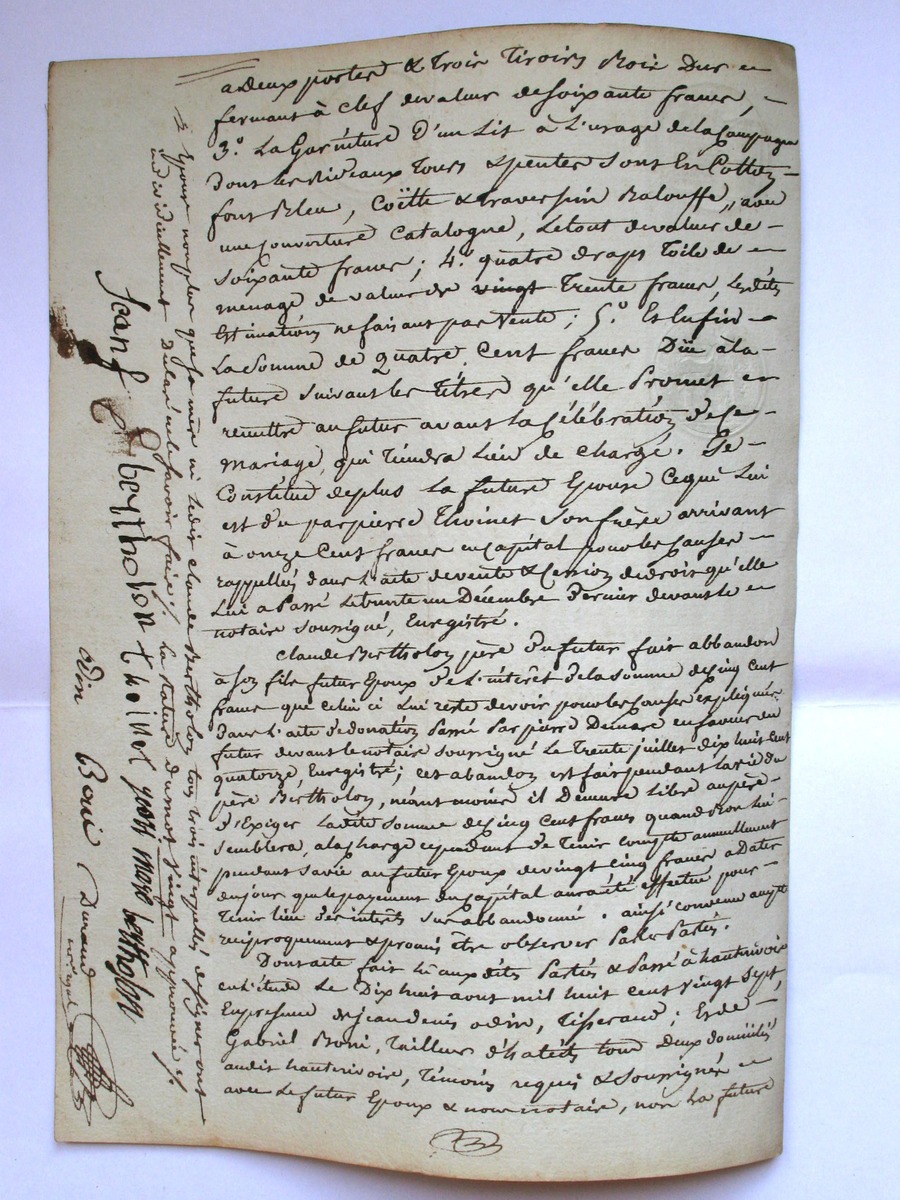 a deux portes & trois tiroirs Bois Dur en
fermant à clef de valeur de soixante francs,
3.° La Garniture D'un Lit à L'usage de la Campagne
Dont les Rideaux tours & pentes sont En Cotton
fond Bleu, Coëtte & traversin Balouffe, avec
une couverture Catalogne, Le tout de valeur de
soixante francs; 4.° quatre draps toile de
menage de valeur de vingt trente francs, Lesdits
Estimations ne faisant pas Vente; 5.° Et Enfin
La somme de quatre Cent francs Düe à la
future suivant les titres qu'elle Promet
remettre au futur avant la Célébration De Ce
mariage, qui tiendra Lieu de charge. Se
Constitue de plus La future Epouse Ce qui Lui
est du par pierre Thoinet Son frère arrivant
à onze Cent francs en Capital pour les Causes
rappellés dans L'acte de vente & Cession de droit qu'elle
Lui a Passé Le trente un Décembre Dernier devant le
notaire soussigné, Enregistré.
Claude Bertholon père Du futur fait abbandon
à Son fils futur Epoux De L'intérêt De la somme de Cinq Cent
francs que Celui ci Lui reste devoir pour les Causes expliquées
Dans L'acte De donation Passé Par pierre Demare en faveur du
futur devant le notaire soussigné Le Trente juillet dix huit Cent
quatorze, Enregistré; cet abandon est fait pendant La vie du
père Bertholon, néant moins il Demeure Libre au père
D'Exiger Ladite somme de Cinq Cent francs quand Bon Lui
semblera, a la charge cependant de Tenir Compte annuellement
pendant sa vie au futur Epoux de vingt Cinq francs a Dater
du jour que le payement du Capital aura été effectué pour
Tenir Lieu des intérêts Sus abbandonné. ainsi convenu accepté
reciproquement & promis être observer Par les Parties.
Dont acte fait Lu aux dites Parties & Passé à hauterivoire
en L'étude Le Dix huit aout mil huit Cent vingt Sept,
En presence de jean denis odin, Tisserand; Et de
Gabriel Boni, Tailleur D'habits tous Deux domiciliés
audit hauterivoire, Témoins requis & soussignés
avec Le futur Epoux & nous notaire, non La future
Epouse non plus que sa mère ni ledit claude Bertholon tous trois interpellés de signer ont
individuellement Déclaré ne le savoir faire; La Rature du mot vingt approuvée
Jean f Bertholon thoinet jean marie bertholon
odin Boni Durand
notaire